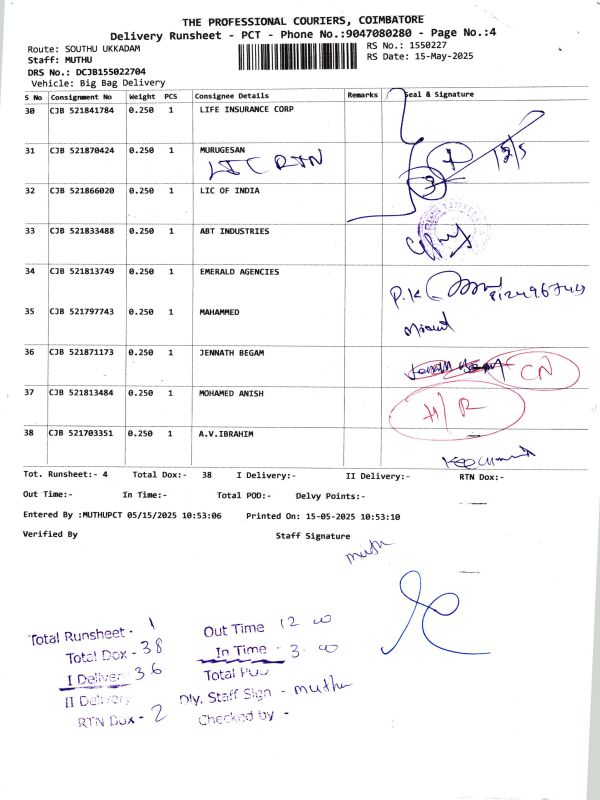 THE PROFESSIONAL COURIERS, COIMBATORE
Delivery Runsheet - PCT - Phone No.:9047080280 - Page No.:4
Route: SOUTHU UKKADAM
RS No.: 1550227
Staff: MUTHU
RS Date: 15-May-2025
DRS No.: DCJB155022704
Vehicle: Big Bag Delivery
S No Consignment No Weight PCS Consignee Details Remarks Seal & Signature
30 CJB 521841784 0.250 1 LIFE INSURANCE CORP
31 CJB 521870424 0.250 1 MURUGESAN
LIC RTN
32 CJB 521866020 0.250 1 LIC OF INDIA
33 CJB 521833488 0.250 1 ABT INDUSTRIES
34 CJB 521813749 0.250 1 EMERALD AGENCIES
35 CJB 521797743 0.250 1 MAHAMMED
36 CJB 521871173 0.250 1 JENNATH BEGAM CN
37 CJB 521813484 0.250 1 MOHAMED ANISH H/R
38 CJB 521703351 0.250 1 A.V.IBRAHIM
Tot. Runsheet:- 4 Total Dox:- 38 I Delivery:- II Delivery:- RTN Dox:-
Out Time:- In Time:- Total POD:- Delvy Points:-
Entered By :MUTHUPCT 05/15/2025 10:53:06 Printed On: 15-05-2025 10:53:10
Verified By Staff Signature
muthu
Total Runsheet - 1
Out Time 12 00
Total Dox - 38
In Time - 3. 00
I Delivery 36
Total POD
II Delivery
Dly. Staff Sign - muthu
RTN Dox - 2
Checked by -